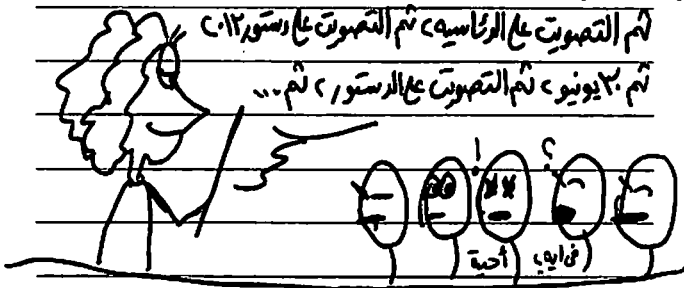 ثم التصويت على الرئاسيه، ثم التصويت على دستور ٢٠١٢،
ثم ٣٠ يونيو، ثم التصويت على الدستور، ثم...
! ؟
أحية